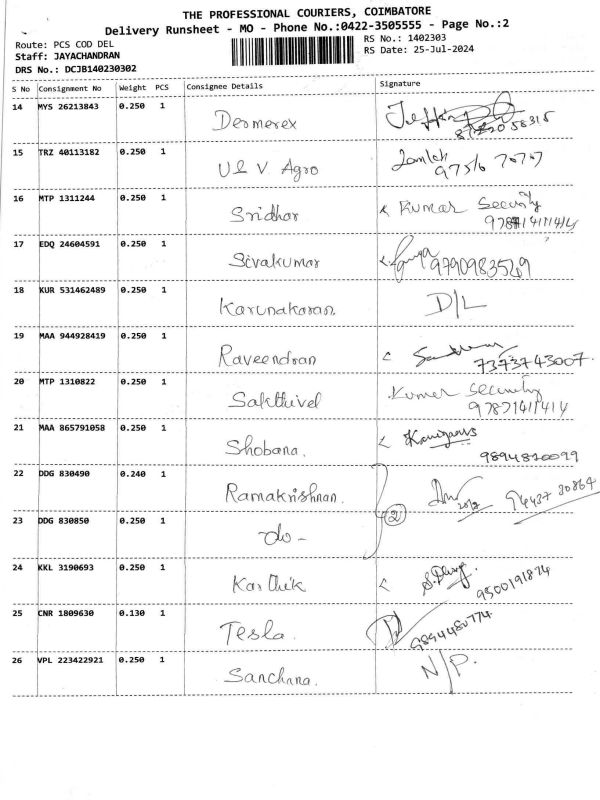 THE PROFESSIONAL COURIERS, COIMBATORE
Delivery Runsheet - MO - Phone No.:0422-3505555 - Page No.:2
Route: PCS COD DEL
RS No.: 1402303
Staff: JAYACHANDRAN
RS Date: 25-Jul-2024
DRS No.: DCJB140230302
S No Consignment No Weight PCS Consignee Details Signature
14 MYS 26213843 0.250 1 Dermerex
15 TRZ 40113182 0.250 1 U & V Agro
97516 70707
16 MTP 1311244 0.250 1 Sridhar Kumar Security
17 EDQ 24604591 0.250 1 Sivakumar
9790983529
18 KUR 531462489 0.250 1 Karunakaran D/L
19 MAA 944928419 0.250 1 Raveendran
7373743007.
20 MTP 1310822 0.250 1 Sakthivel Kumar Security
97871411414
21 MAA 865791058 0.250 1 Shobana.
9894820099
22 DDG 830490 0.240 1 Ramakrishnan.
94437 30864
2
23 DDG 830850 0.250 1 do -
24 KKL 3190693 0.250 1 Karthik
9500191874
25 CNR 1809630 0.130 1 Tesla.
9894480774
26 VPL 223422921 0.250 1 Sanchana. N/P.